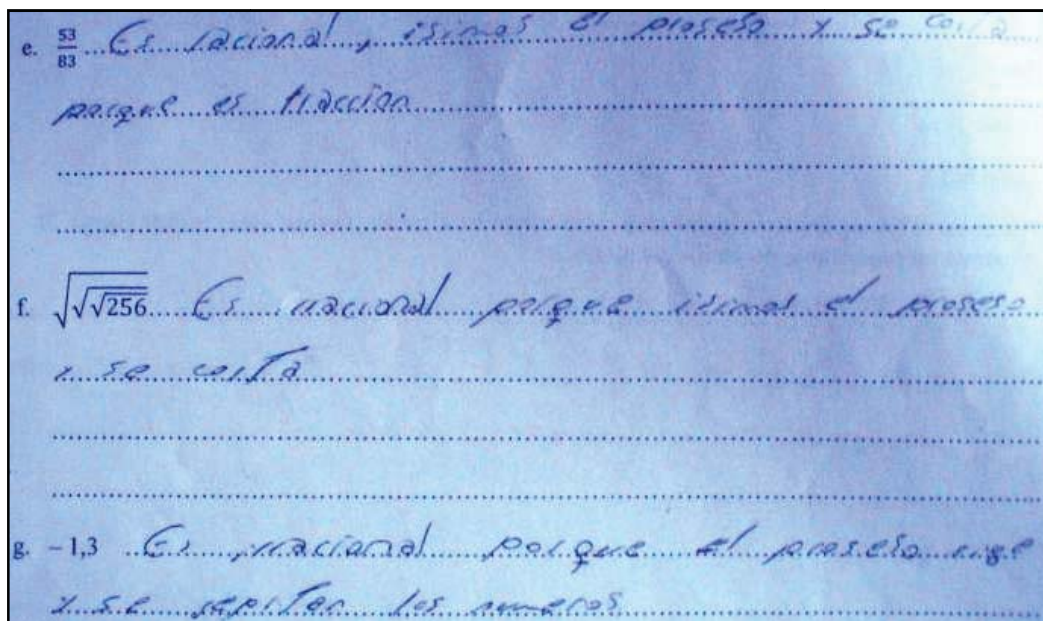 e. 53/83 Es racional, isimos el proseso y se corta
porque es fraccion
f. √√√256 Es irracional porque isimos el proseso
y se corta
g. –1,3 Es irracional porque el proseso sige
y se repiten los numeros